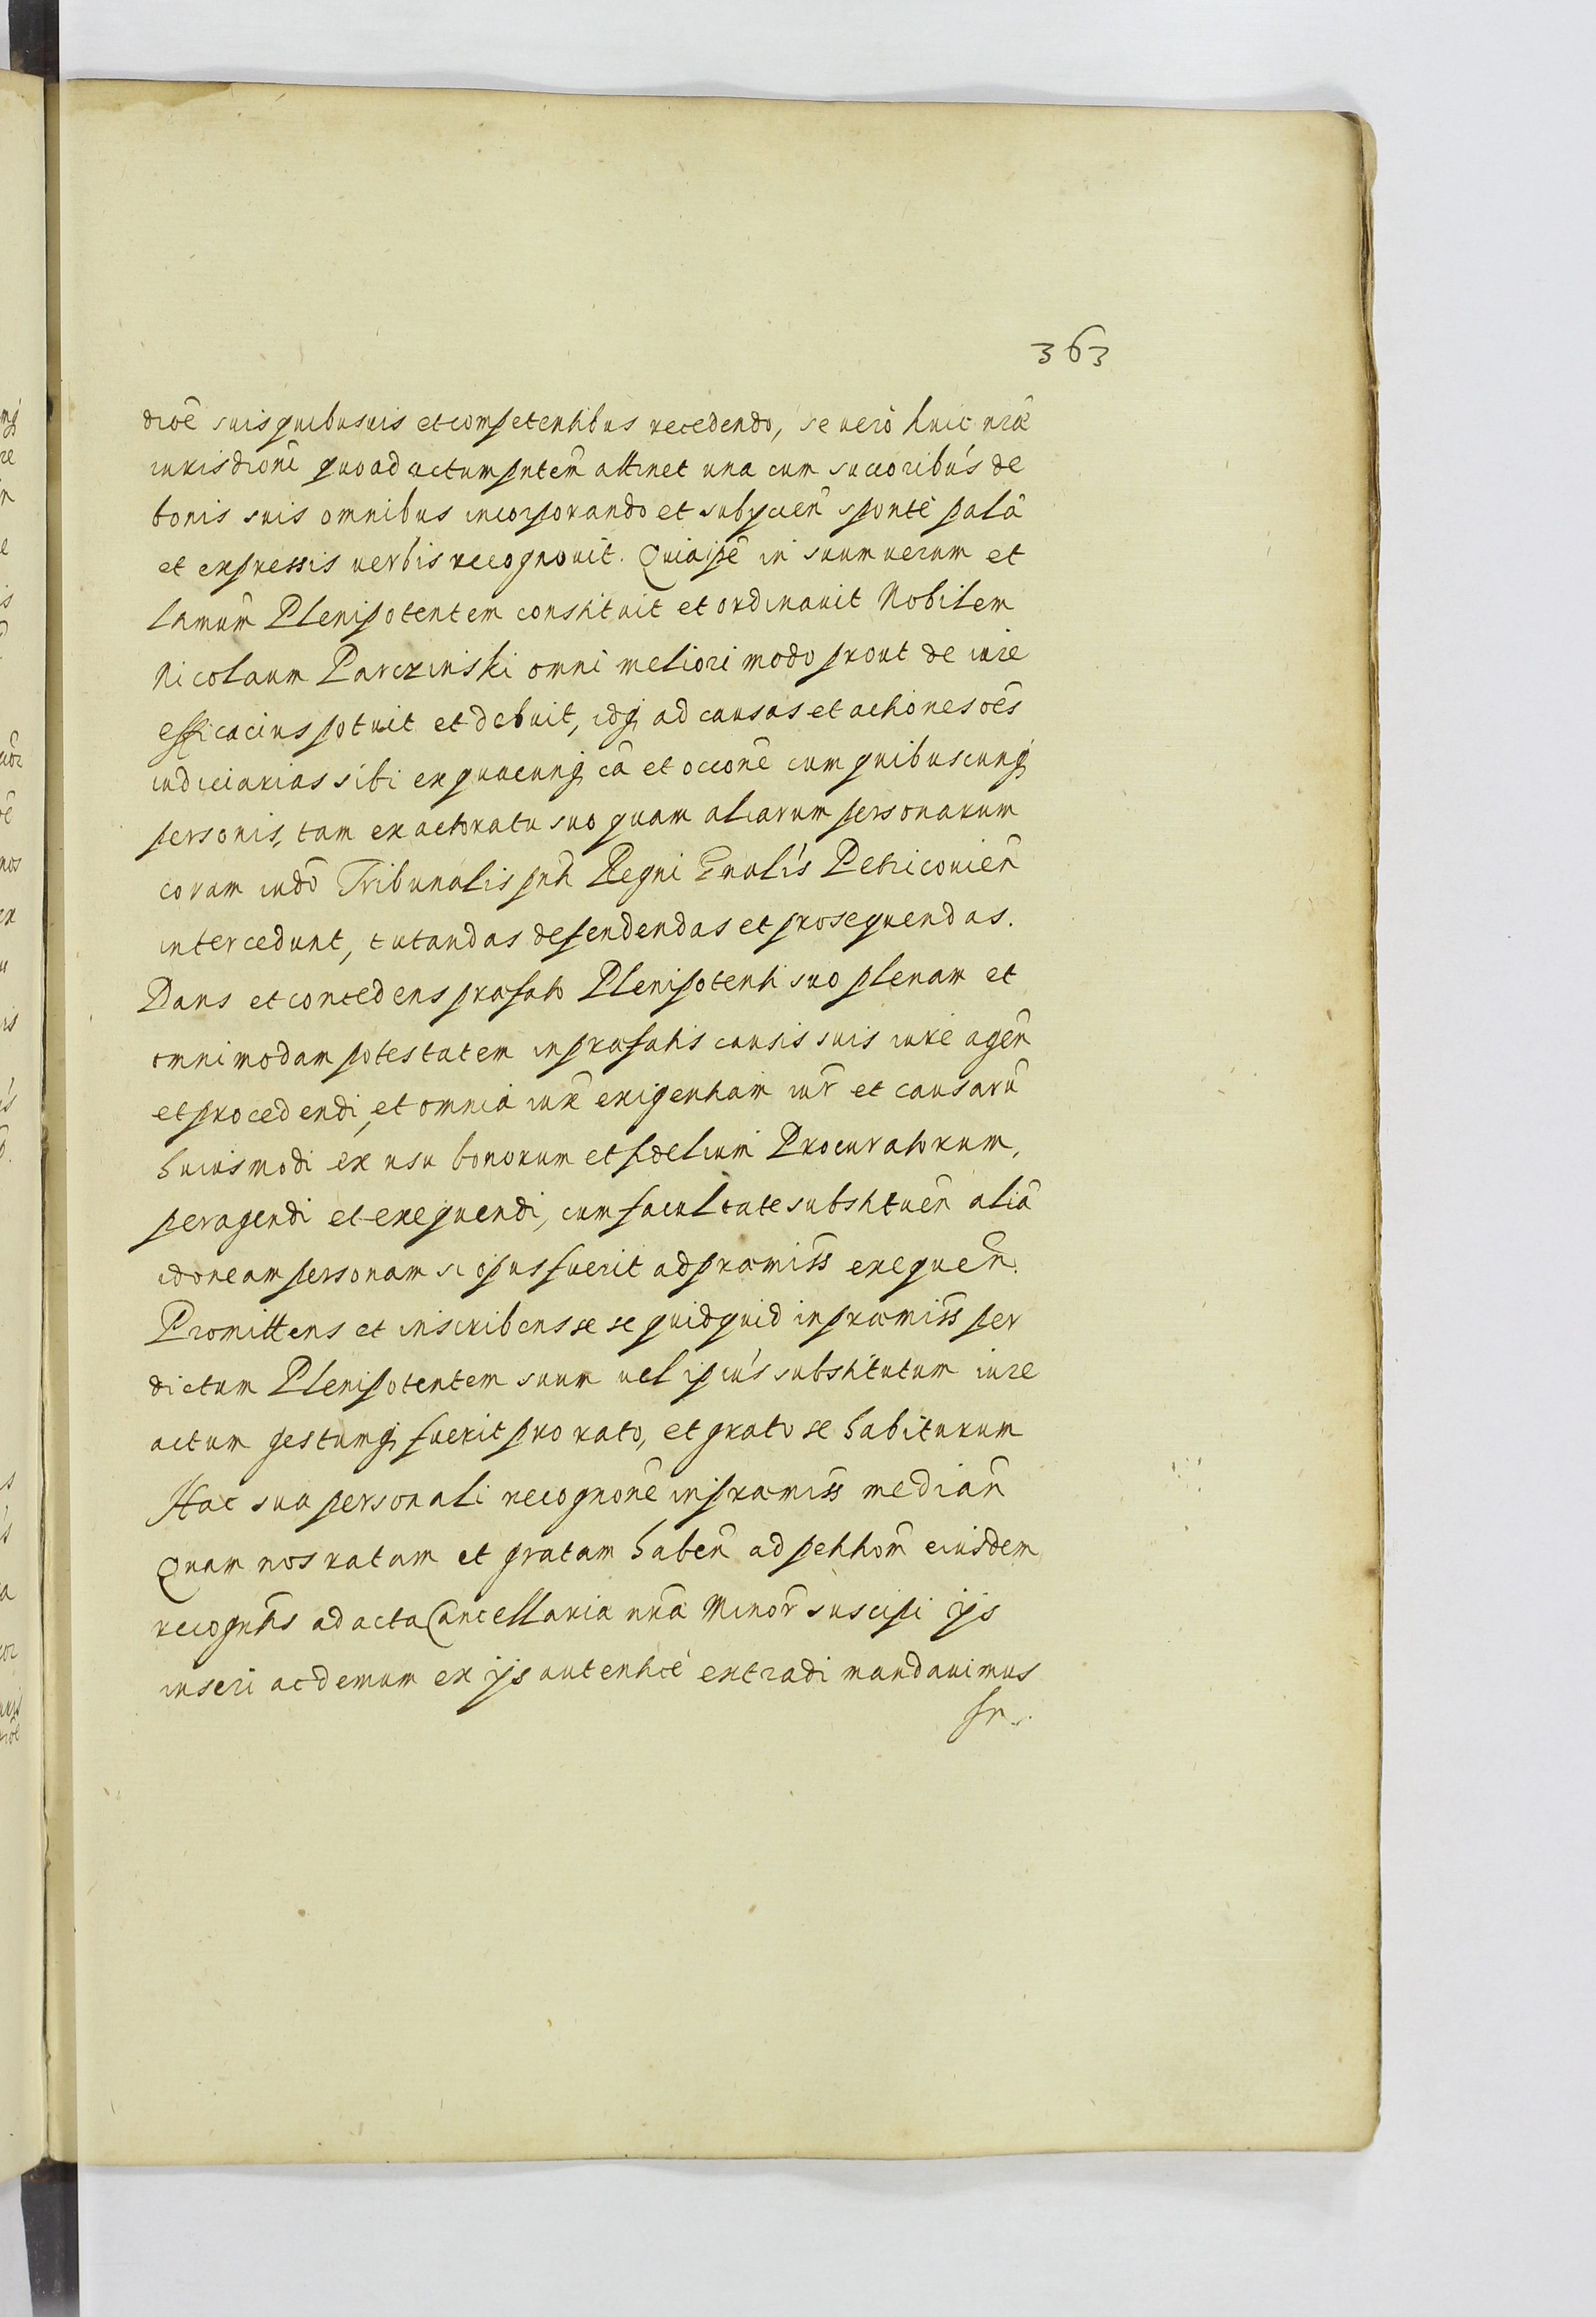 363
dioē suis quibusuis et competentibus recedendo, se uero huic nrae
iurisdioni quoad actum pntem attinet una cum succoribus de
bonis suis omnibus incorporando et subycien̄ sponte palā
et expressis uerbis recognouit. Quia ipē in suum uerum et
ltimum Plenipotentem constituit et ordinauit Nobilem
Nicolaum Parczinski omni meliori modo prout de iure
efficacius potuit et debuit, idq ad causas et actiones oēs
iudiciarias sibi ex quacunq cā et occone cum quibuscunq
personis, tam ex actoratu suo quam aliarum personarum
coram iudō Tribunalis pnti Regni Gnalis Petricouien̄
intercedunt, tutandas defendendas et prosequendas.
Dans et concedens praefato Plenipotenti suo plenam et
omnimodam potestatem in praefatis causis suis iure agen̄
et procedendi, et omnia iux exigentiam iur̄ et causarū
huiusmodi ex usu bonorum et fidelium Procuratorum,
peragendi et exequendi, cum facultate substituen̄ aliā
idoneam personam si opus fuerit ad praemiss exequen̄.
Promittens et inscribens se se quidquid in praemiss per
dictum Plenipotentem suum uel ipius substitutum iure
actum gestumq fuerit pro rato, et grato se habiturum
Hac sua personali recognone in praemiss median̄
Quam nos ratam et gratam haben̄ ad petitiom eiusdem
recogntis ad acta Cancellaria nra Minor̄ suscipi ijs
inseri ac demum ex ijs autentice extradi mandauimus